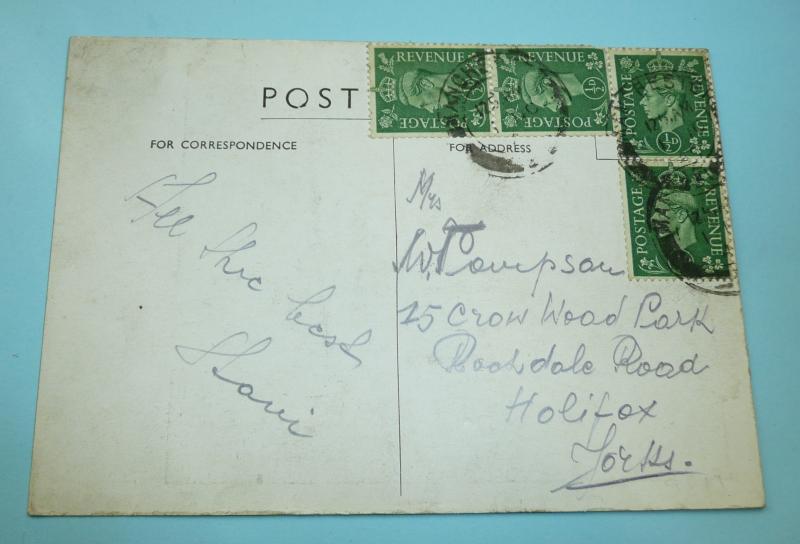 POST
FOR CORRESPONDENCE
FOR ADDRESS
REVENUE
½D
POSTAGE
REVENUE
½D
POSTAGE
POSTAGE
REVENUE
½D
POSTAGE
REVENUE
All the best
Mrs
W. Tompson
25 Crow Wood Park
Rochdale Road
Holifox
Yorks.